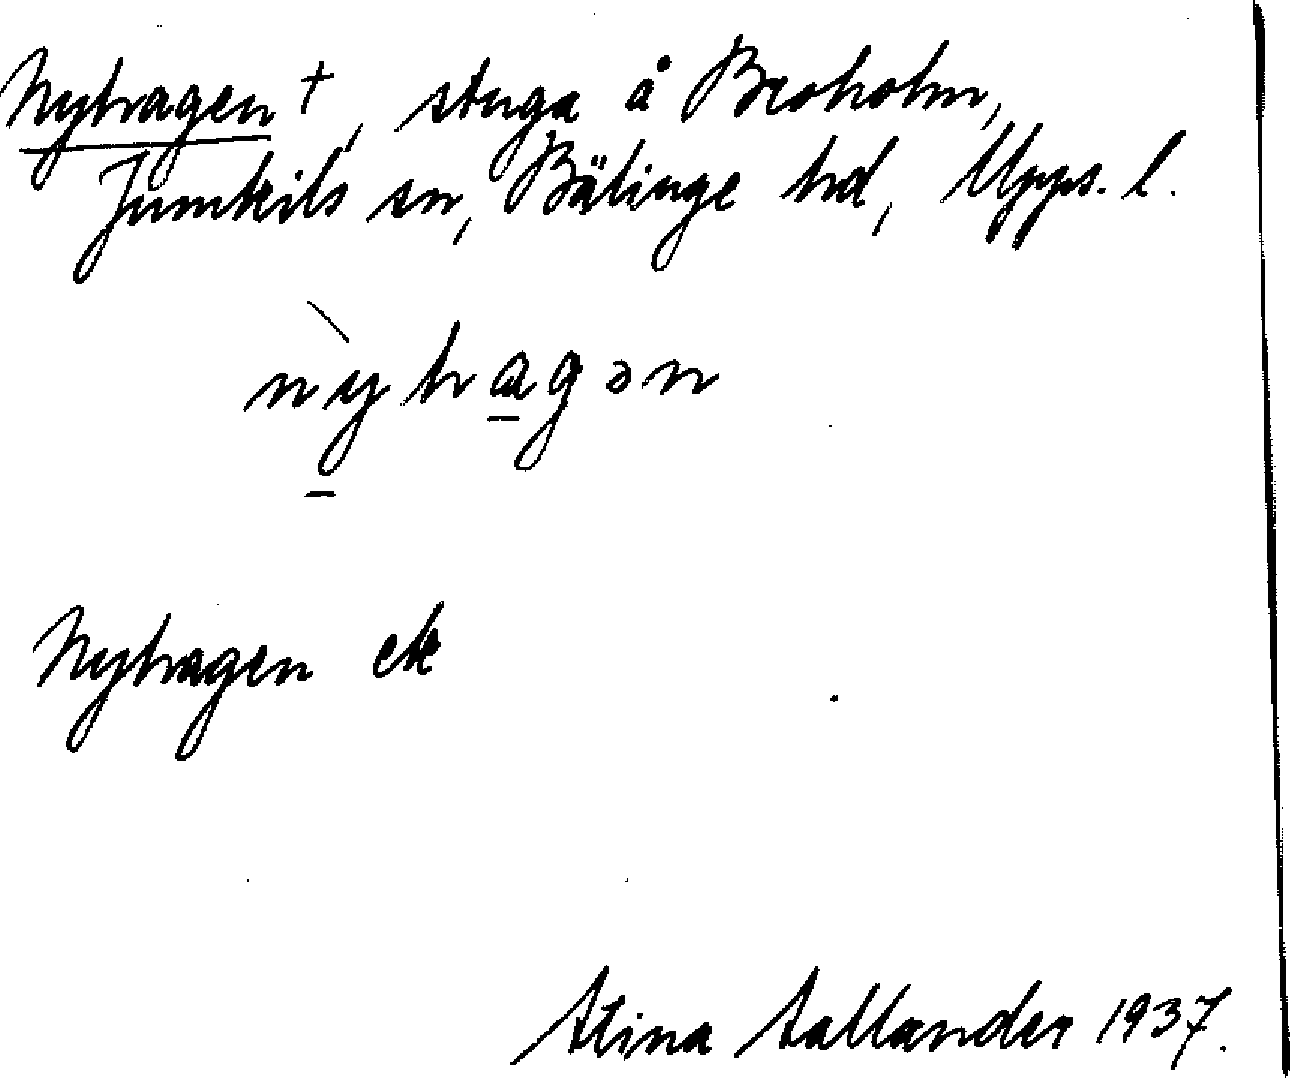 Nyhagen +, stuga å Broholm,
Jumkils sn, Bälinge hd, Upps. l.
ǹyhagən
Nyhagen ek
Stina Sallander 1937.